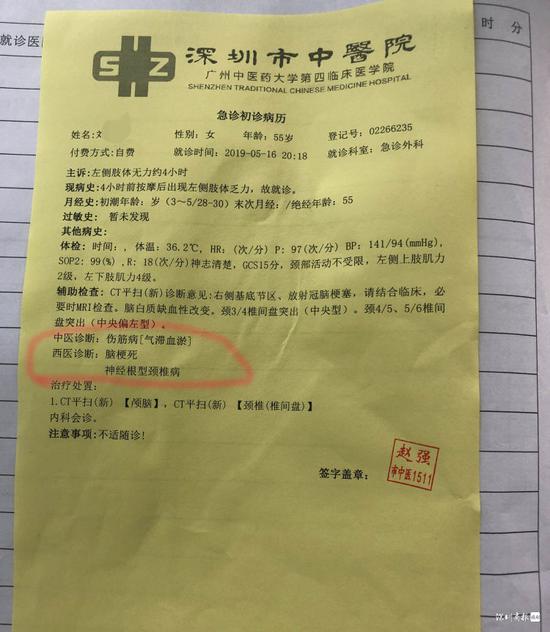 时 分
就诊医
SZ
深圳市中醫院
广州中医药大学第四临床医学院
SHENZHEN TRADITIONAL CHINESE MEDICINE HOSPITAL
急诊初诊病历
姓名: 性别: 女 年龄: 55岁 登记号: 02266235
付费方式: 自费 就诊时间: 2019-05-16 20:18 就诊科室: 急诊外科
主诉: 左侧肢体无力约4小时
现病史: 4小时前按摩后出现左侧肢体乏力, 故就诊。
月经史: 初潮年龄: 岁（3～5/28-30）末次月经: /绝经年龄: 55
过敏史: 暂未发现
其他病史:
体检: 时间: , 体温: 36.2℃, HR: (次/分) P: 97(次/分) BP: 141/94(mmHg),
SOP2: 99(%) ,R: 18(次/分)神志清楚, GCS15分, 颈部活动不受限, 左侧上肢肌力
2级, 左下肢肌力4级。
辅助检查: CT平扫(新)诊断意见: 右侧基底节区、放射冠脑梗塞, 请结合临床, 必
要时MRI检查。脑白质缺血性改变。颈3/4椎间盘突出（中央型）。颈4/5、5/6椎间
盘突出（中央偏左型）。
中医诊断: 伤筋病[气滞血淤]
西医诊断: 脑梗死
神经根型颈椎病
治疗处置:
1.CT平扫(新) 【颅脑】, CT平扫(新) 【颈椎(椎间盘)】
内科会诊。
注意事项: 不适随诊!
签字盖章:
赵强
市中医1511
深圳商报